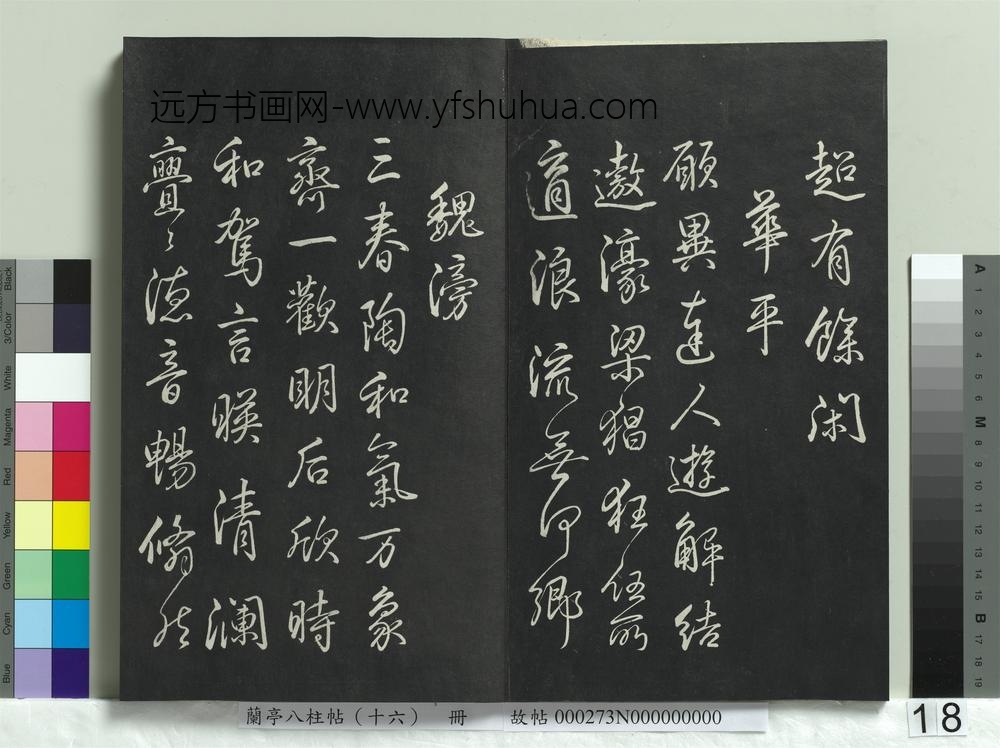 远方书画网-www.yfshuhua.com
超有餘閑
華平
願異達人遊解結
遨濠梁猖狂任所
適浪流無何鄉
魏滂
三春陶和氣万象
齊一歡明后欣時
和駕言暎清瀾
亹〻德音暢翛然
蘭亭八柱帖（十六） 冊 故帖 000273N000000000
18
Black
3/Color
White
Magenta
Red
Yellow
Green
Cyan
Blue
A 1 2 3 4 5 6 M 8 9 10 11 12 13 14 15 B 17 18 19